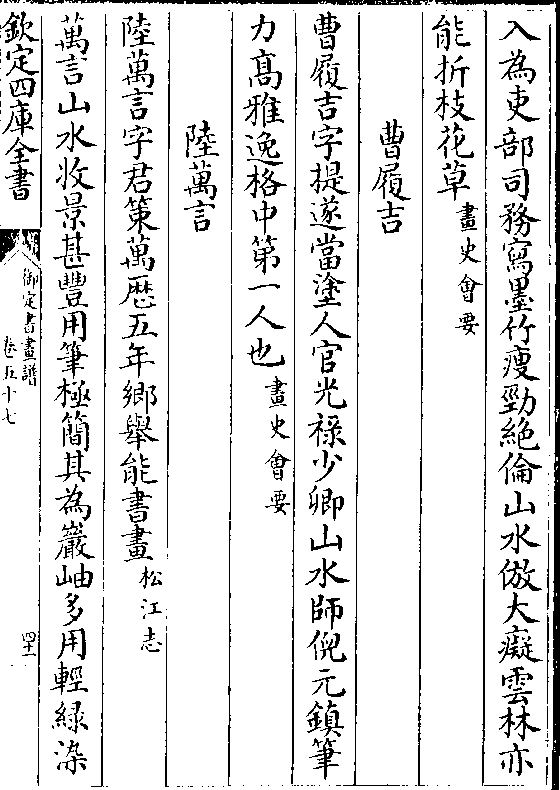 入為吏部司務寫墨竹瘦勁絶倫山水倣大癡雲林亦
能折枝花草畫史會要
曹履吉
曹履吉字提遂當塗人官光禄少卿山水師倪元鎮筆
力髙雅逸格中第一人也畫史會要
陸萬言
陸萬言字君策萬歴五年鄉舉能書畫松江志
萬言山水收景甚豐用筆極簡其為巖岫多用輕緑染
欽定四庫全書
御定書畫譜
卷五十七
四十二